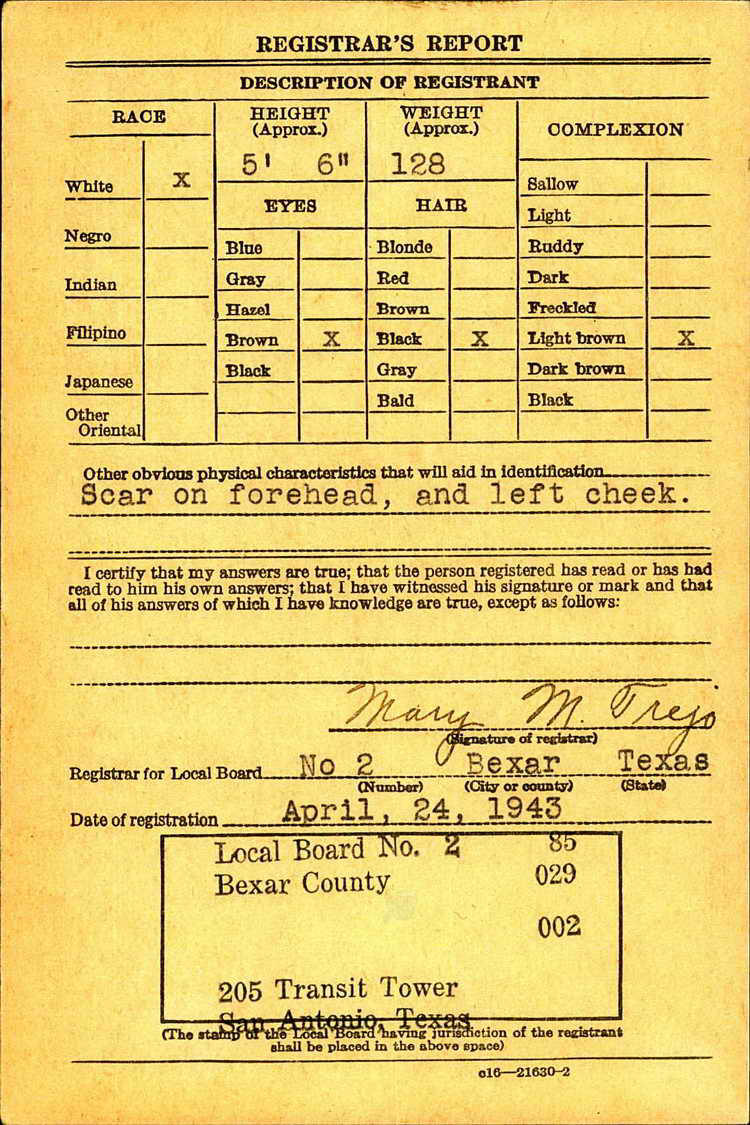 REGISTRAR'S REPORT
DESCRIPTION OF REGISTRANT
RACE
White X
Negro
Indian
Filipino
Japanese
Other
Oriental
HEIGHT
(Approx.)
5' 6"
WEIGHT
(Approx.)
128
EYES
Blue
Gray
Hazel
Brown X
Black
HAIR
Blonde
Red
Brown
Black X
Gray
Bald
COMPLEXION
Sallow
Light
Ruddy
Dark
Freckled
Light brown X
Dark brown
Black
Other obvious physical characteristics that will aid in identification
Scar on forehead, and left cheek.
I certify that my answers are true; that the person registered has read or has had
read to him his own answers; that I have witnessed his signature or mark and that
all of his answers of which I have knowledge are true, except as follows:
Mary M. Trejo
(Signature of registrar)
Registrar for Local Board No 2 Bexar Texas
(Number) (City or county) (State)
Date of registration April, 24, 1943
Local Board No. 2 85
Bexar County 029
002
205 Transit Tower
San Antonio, Texas
(The stamp of the Local Board having jurisdiction of the registrant
shall be placed in the above space)
c16—21630-2